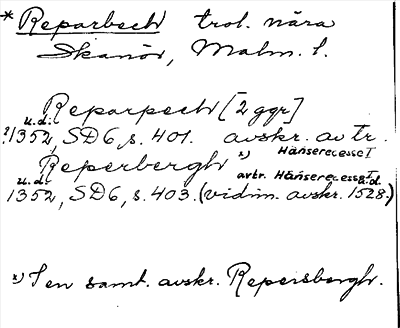 * Reparbech trol. nära
Skanör, Malm. l.
Reparpech [2 ggr]
u.d.
?1352, SD6, s. 401. avskr. av tr.
Hanserecesse I
Reperbergh *)
avtr. Hanserecesse I
u.d. s.d.
1352, SD6, s. 403. (vidim. avskr. 1528.)
*) I en samt. avskr. Repersbergh.